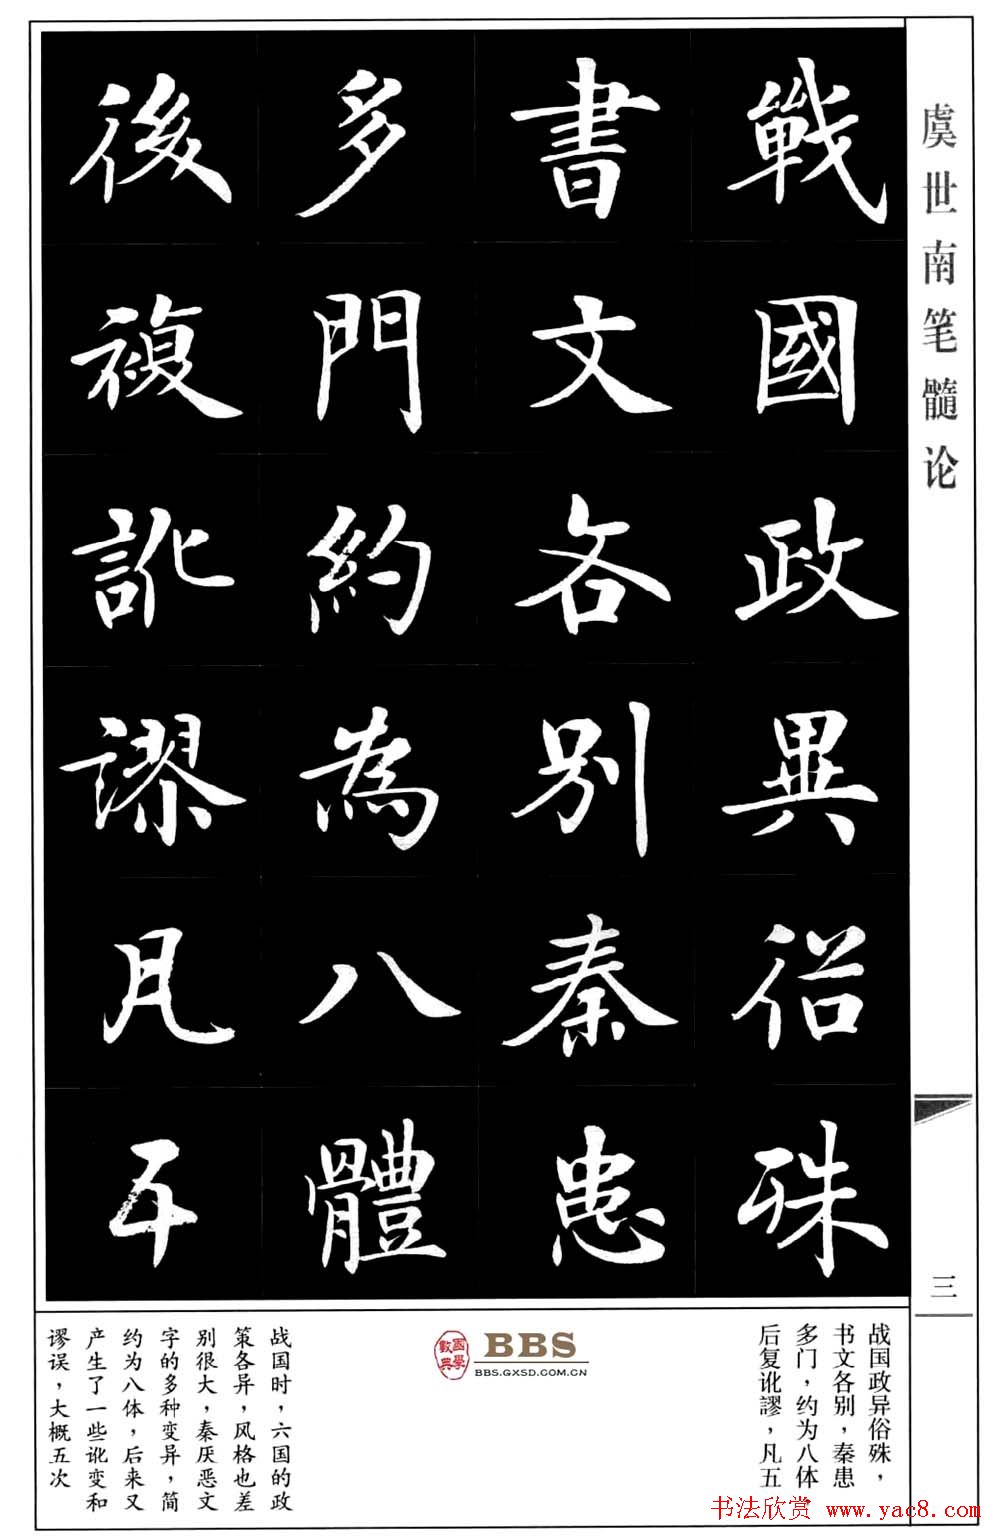 虞世南笔髓论
三
戰國政異俗殊
書文各別秦患
多門約為八體
後複訛謬凡五
战国政异俗殊，
书文各别，秦患
多门，约为八体，
后复讹謬，凡五
BBS
BBS.GXSD.COM.CN
国学
数典
战国时，六国的政
策各异，风格也差
别很大，秦厌恶文
字的多种变异，简
约为八体，后来又
产生了一些讹变和
谬误，大概五次
书法欣赏 www.yac8.com